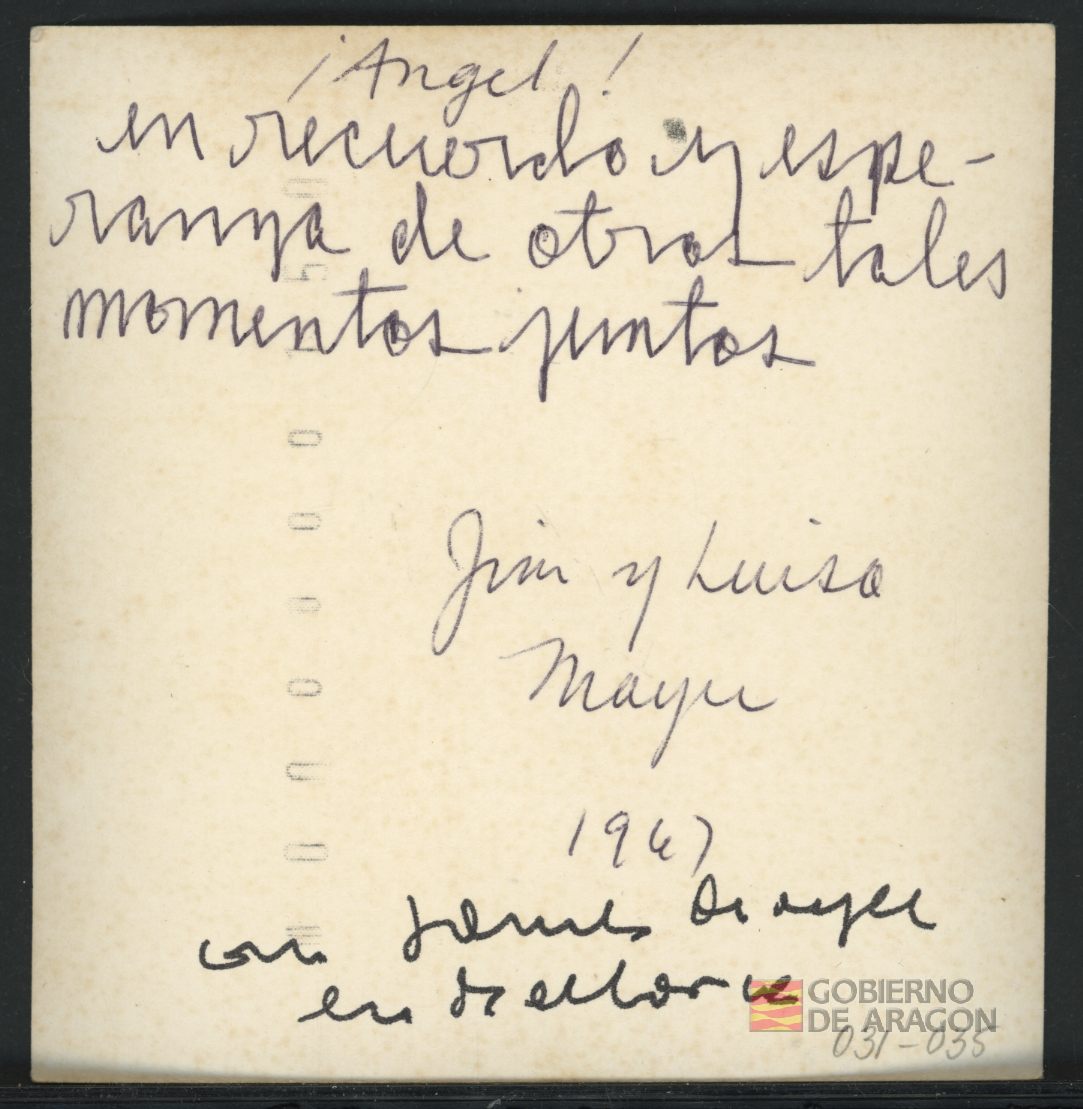 ¡Angel!
en recuerdo y espe-
ranza de otros tales
momentos juntos
Jim y Luisa
Mayer
1967
con James
en
GOBIERNO
DE ARAGON
031-035